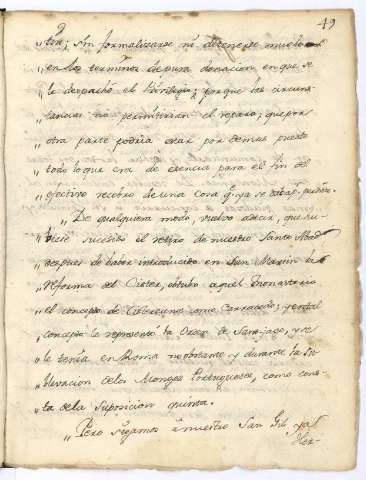 49
ston; sin formalizarse ni detenerse mucho
„ en los terminos de pura donacion en que se
„ le despachó el Privilegio; porque las circuns-
„ tancias no permitirian el reparo; que por
„ otra parte podria estar por demas puesto
„ todo lo que era de esencia para el fin del
„ efectivo recobro de una cosa q.e ya se daba p.r
„ De qualquiera modo, vuelvo adecir, que hu-
„ viese sucedido el retiro de nuestro Santo Abad
„ despues de haber introducido en San Martin la
„ reforma del Cister, obtubo aquel Monasterio
„ el concepto de Cisterciense como Carracedo; y en tal
„ concepto le representó la Orden de Santiago, y se
„ le tenia en Roma no obstante y durante la In-
„ trevacion delos Monges Portugueses, como cons-
„ ta dela Suposicion quinta.
„ Pero sigamos a nuestro San Gil ya
Her-